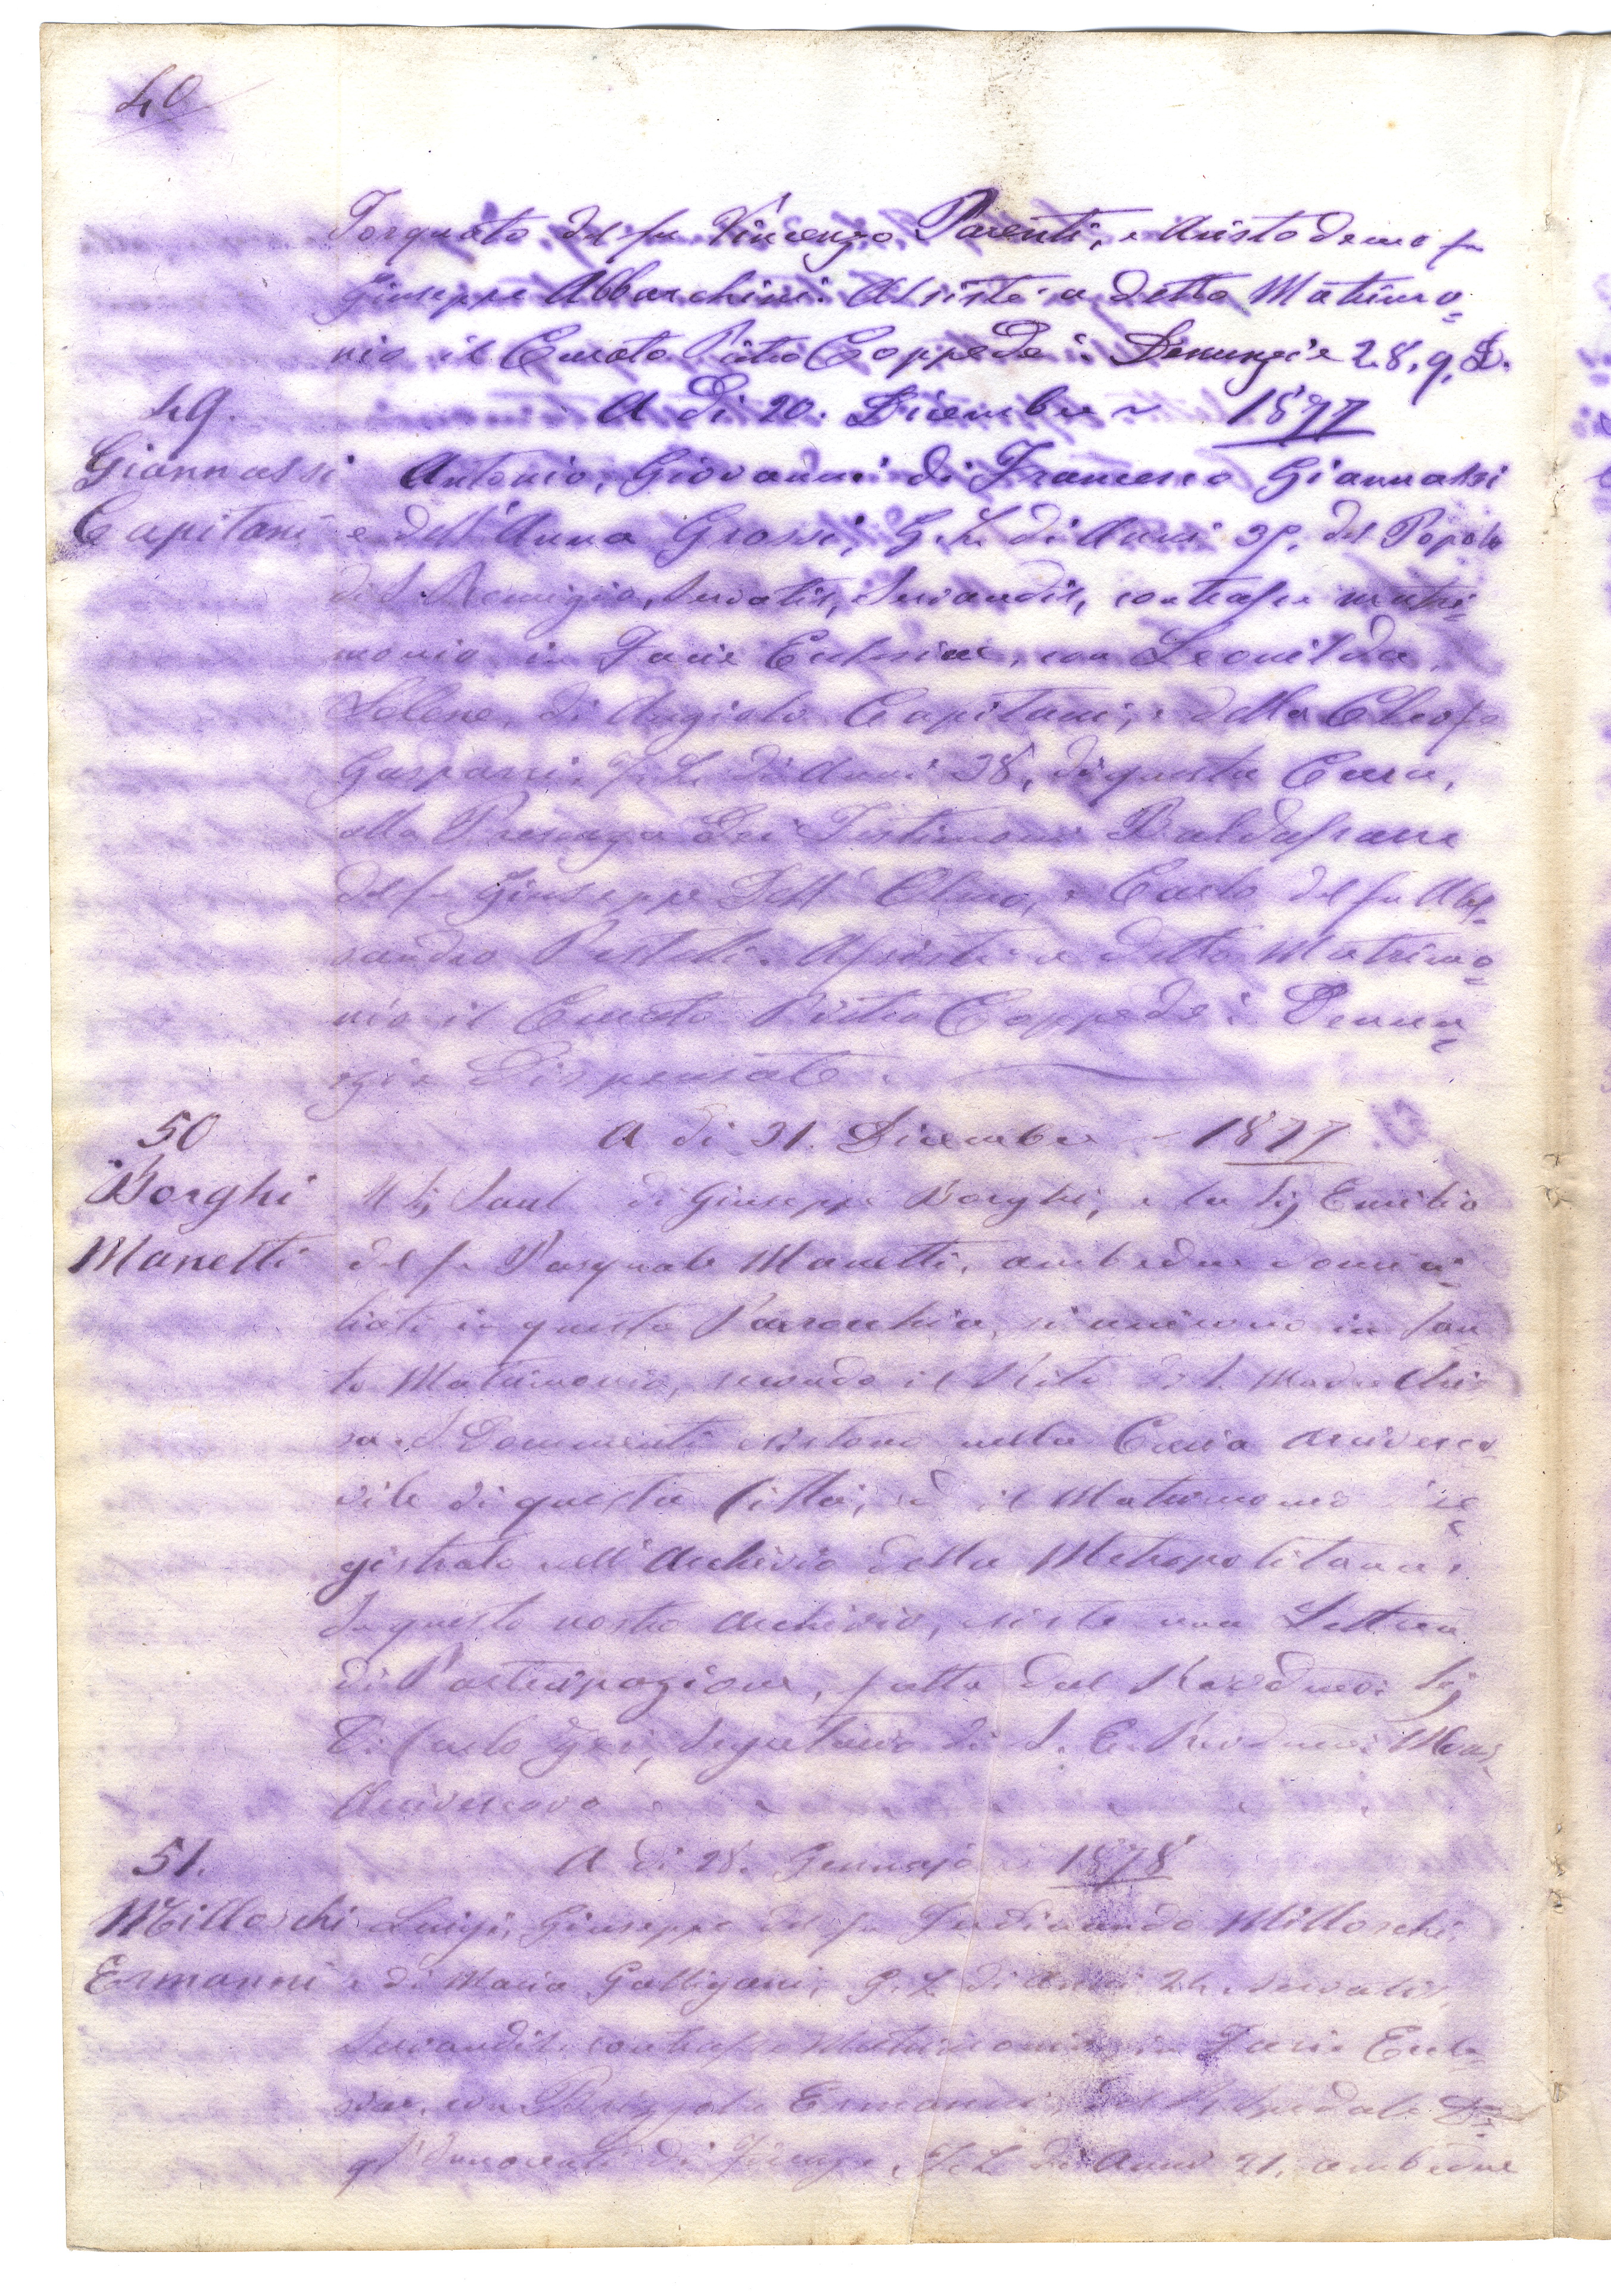 40
Torquato del fu Vincenzo Parenti, e Aristodemo fu
Giuseppe Abbarchini. Assistè a detto Matrimo=
nio il Curato Pietro Coppedè: Denunzie 2. 8. 9. D.
49. A dì 20. Dicembre ~ 1877
Giannassi Antonio, Giovanni di Francesco Giannassi
Capitani e dell'Anna Grossi, G. L. di Anni 39. del Popolo
di S. Remigio, Servatis, Servandis, contrasse matri=
monio in Facie Eclesiae, con Leonilda,
Selene, di Angiolo Capitani, e della Cleofe
Gasparri, F. L. di Anni 38, di questa Cura,
alla Presenza dei Testimoni Baldassarre
del fu Giuseppe Dell' Olmo, e Carlo del fu Ales=
sandro Pestelli. Assistè a detto Matrimo=
nio il Curato Pietro Coppedè: Denun=
zie Dispensate.
50 A dì 31. Dicembre - 1877
Borghi Il Sig Saul di Giuseppe Borghi, e la Sig Emilia
Manetti del fu Pasquale Manetti, ambedue domici=
liati in questa Parrocchia, si unirono in San
to Matrimonio, secondo il Rito di S. Madre Chie
sa. I Documenti esistono nella Curia Arcivesco
vile di questa Città, ed il Matrimonio è re=
gistrato nell'Archivio della Metropolitana.
In questo nostro Archivio, esiste una Lettera
di Partecipazione, fatta dal Revdmo: Sig
Carlo Segretario di S. E. Revdma: Mons.
Arcivescovo
51. A dì 28. Gennajo 1878
Milloschi Luigi, Giuseppe del fu Ferdinando Milloschi,
Ermanni e di Maria Galligani, G. L. di Anni 24. Servatis,
Servandis, contrasse Matrimonio in Facie Ecle=
siae, con Ermanni, dello Spedale de=
gl'Innocenti di Firenze, F. L. di Anni 21. ambedue